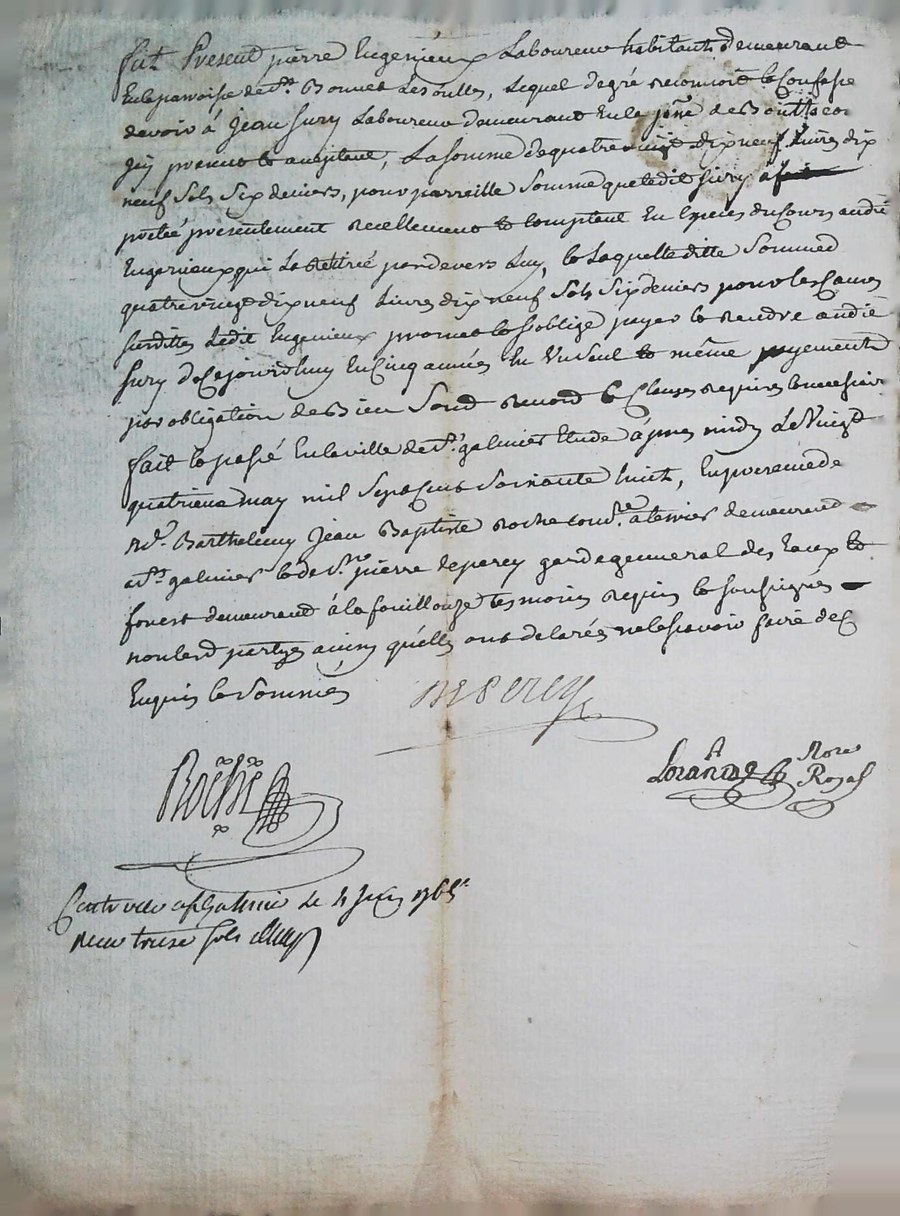 fut Present pierre Engenieux Laboureur habitant demeurant
En la paroisse de st. Bonnet Les oulles, Lequel de gré reconnoit et Confesse
devoir à Jean Sury Laboureur demeurant En la de
present et acceptant, La somme de quatre vingt dix neuf Livres dix
neuf Sols Six deniers, pour parreille Somme que ledit Sury a
preté presentement reellement et Comptant En Especes du Cours audit
Engenieux qui La Retiré pardevers Luy, et Laquelle ditte Somme de
quatre vingt dix neuf Livres dix neuf Sols Six deniers pour les Causes
surdittes Ledit Engenieux promet et soblige payer et rendre audit
Sury de Cejourdhuy En Cinq années En Un Seul et même payement
par obligation de Bien Soud renond et Clauses requises
fait et passé En la ville de st. galmier Etude après midy Le Vingt
quatrieme may mil Sept Cent Soixante huit, En presence de
Barthelemy Jean Baptiste Roche demeurant
a st. galmier et de sr. pierre deperey garde general des Eaux et
forest demeurant à la fouillouze temoins requis et soussignés
non Lesd partyes ainsy quelles ont declarés ne le sçavoir faire de ce
Enquis et Sommés deperey
Roche
Nore
Royal
Controllé a st Galmier le 4 Juin 1768
Receu treize sols